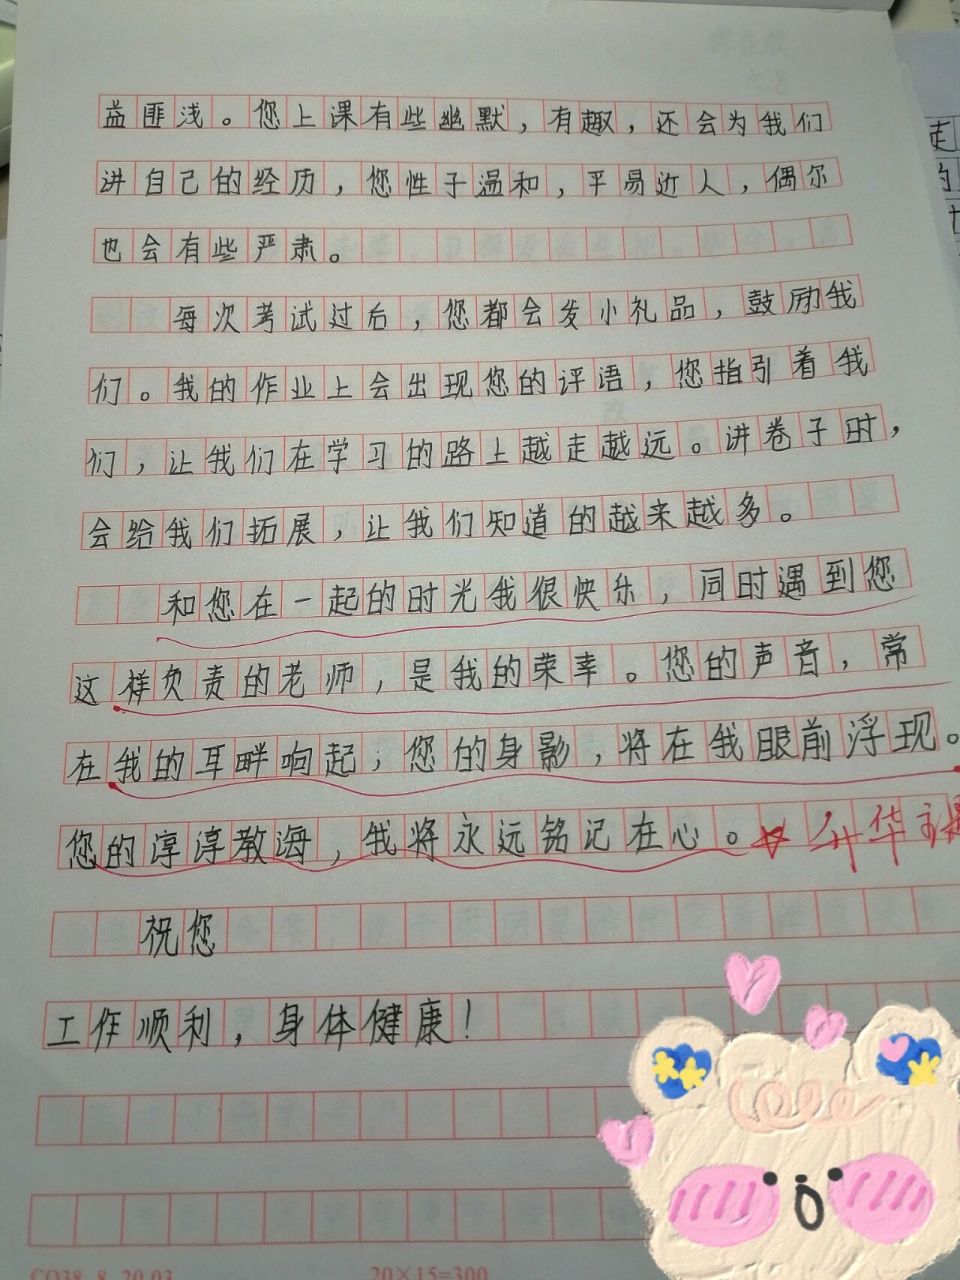 益匪浅。您上课有些幽默，有趣，还会为我们
讲自己的经历，您性子温和，平易近人，偶尔
也会有些严肃。
每次考试过后，您都会发小礼品，鼓励我
们。我的作业上会出现您的评语，您指引着我
们，让我们在学习的路上越走越远。讲卷子时，
会给我们拓展，让我们知道的越来越多。
和您在一起的时光我很快乐，同时遇到您
这样负责的老师，是我的荣幸。您的声音，常
在我的耳畔响起；您的身影，将在我眼前浮现。
您的淳淳教海，我将永远铭记在心。升华主题
祝您
工作顺利，身体健康！
20×15=300